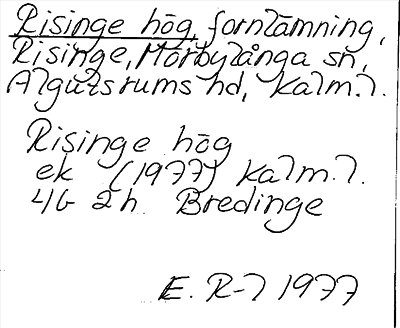 Risinge hög, fornlämning,
Risinge, Mörbylånga sn,
Algutsrums hd, Kalm.l.
Risinge hög
ek (1977) Kalm.l.
4G 2h Bredinge
E. R-l 1977